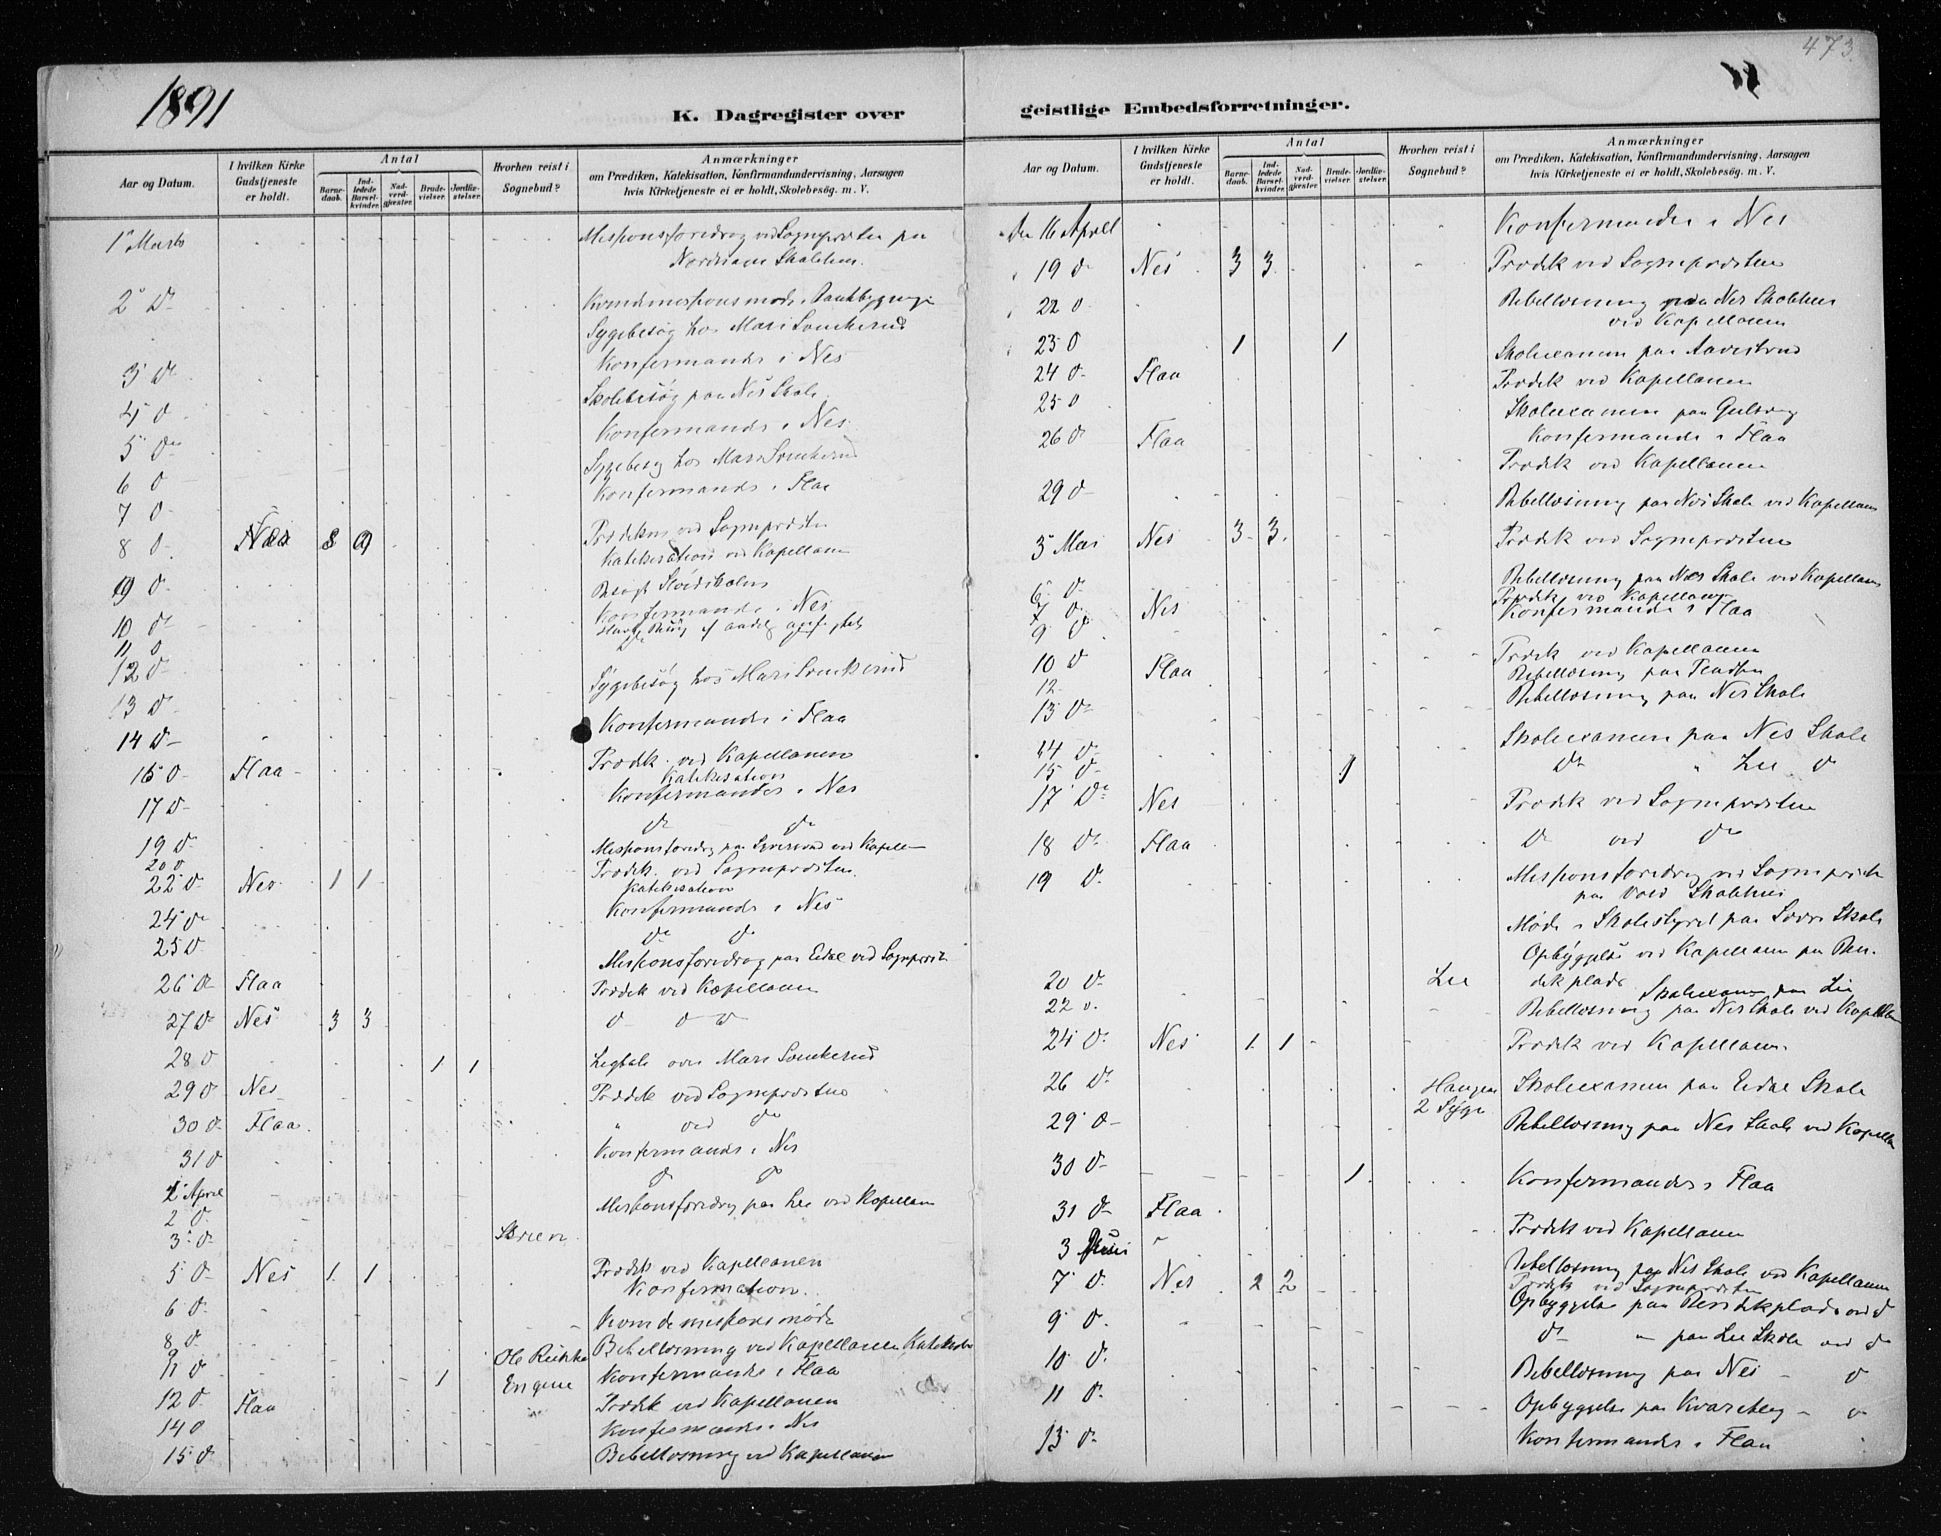 473
1891
K. Dagregister over geistlige Embedsforretninger.
Aar og Datum.
I hvilken Kirke Gudstjeneste er holdt.
Antal
Barnedaab.
Indledede Barselkvinder.
Nadverdgjæster.
Brudevielser.
Jordfæstelser.
Hvorhen reist i Sognebud?
Anmærkninger
om Prædiken, Katekisation, Konfirmandundervisning, Aarsagen
hvis Kirketjeneste ei er holdt, Skolebesög. m. V.
1 Marts Missionsforedrag ved Sognepresten paa
Skolehus.
2 D Kvindemissionsmöde
Sygebesøg hos Mari
3 D Konfermander i Nes
4 D Skolebesøg paa Nes Skole
5 D Konfermander i Nes
6 D Sygebesøg hos Mari
7 D Konfermander i Flaa
8 D 8 9 Prædiken ved Sognepresten
Katekisation ved Kapellanen
9 D Besøgt
10 D Konfermander i Nes
11 D
12 D Sygebesøg hos Mari
13 D
14 D Konfermander i Flaa
15 D Flaa Prædik. ved Kapellanen
Katekisation
17 D Konfermander i Nes
19 D D D
20 D Missionsforedrag paa ved Kapellan
22 D Nes 1 1 Prædik. ved Sognepresten
Katekisation
24 D Konfermander i Nes
25 D D D
Missionsforedrag paa Eidal ved Sogneprest
26 D Flaa Prædik ved Kapellanen
27 D Nes 3 3 D D D
28 D 1 1 Ligtale over Mari
29 D Nes Prædik ved Sognepresten
30 D Flaa " ved D
31 D Konfermander i Nes
1 April D D
2 D Missionsforedrag paa Lie ved Kapellan
3 D
5 D Nes 1 1 Prædik ved Kapellanen
Konfirmation
6 D
8 D Kvindemissionsmöde
9 Bibellæsning ved Kapellanen
11 D 1 Ole Engene Konfermander i Flaa
12 D Flaa Prædik ved Kapellanen
14 D Konfermander i Nes
15 D Bibellæsning ved Kapellanen
Aar og Datum.
I hvilken Kirke Gudstjeneste er holdt.
Antal
Barnedaab.
Indledede Barselkvinder.
Nadverdgjæster.
Brudevielser.
Jordfæstelser.
Hvorhen reist i Sognebud?
Anmærkninger
om Prædiken, Katekisation, Konfirmandundervisning, Aarsagen
hvis Kirketjeneste ei er holdt, Skolebesög. m. V.
den 16 April Konfermander i Nes
19 D Nes 3 3 Prædik ved Sognepresten
22 D Bibellæsning paa Nes Skolehus
ved Kapellanen
23 D 1 1 Skoleexamen paa
24 D Flaa Prædik ved Kapellanen
25 D Skoleexamen paa Gulsvig
26 D Flaa Konfermander i Flaa
Prædik ved Kapellanen
29 D Bibellæsning paa Nes Skole ved Kapellan
3 Mai Nes 3 3 Prædik ved Sognepresten
6 D Bibellæsning paa Nes Skole ved Kapellan
7 D Nes Prædik ved Kapellanen
9 D Konfermander i Flaa
10 D Flaa Prædik ved Kapellanen
12 Bibellæsning paa
13 D Bibellæsning paa Nes Skole
14 D Skoleexamen paa Nes Skole
15 D 1 D " Lie D
17 D Nes Prædik ved Sognepresten
18 D Flaa D ved D
19 D Missionsforedrag ved Sogneprest
paa Skolehus
Møde i Skolestyret paa Skole
Opbyggelse ved Kapellanen paa
20 D Lie Skoleexamen paa Lie
22 D Bibellæsning paa Nes Skole ved Kapellan
24 D Nes 1 1 Prædik ved Kapellanen
26 D Haugen 2 Syge Skoleexamen paa Eidal Skole
29 D Bibellæsning paa Nes Skole ved Kapellan
30 D 1 Konfermander i Flaa
31 D Flaa Prædik ved Kapellanen
3 Juni Bibellæsning paa Nes Skole ved Kapellanen
7 D Nes 2 2 Prædik ved Sognepresten
9 D Opbyggelse paa ved D
D paa Lie Skole ved D
10 D Bibellæsning paa Nes D
11 D Opbyggelse paa D
13 D Konfermander i Flaa